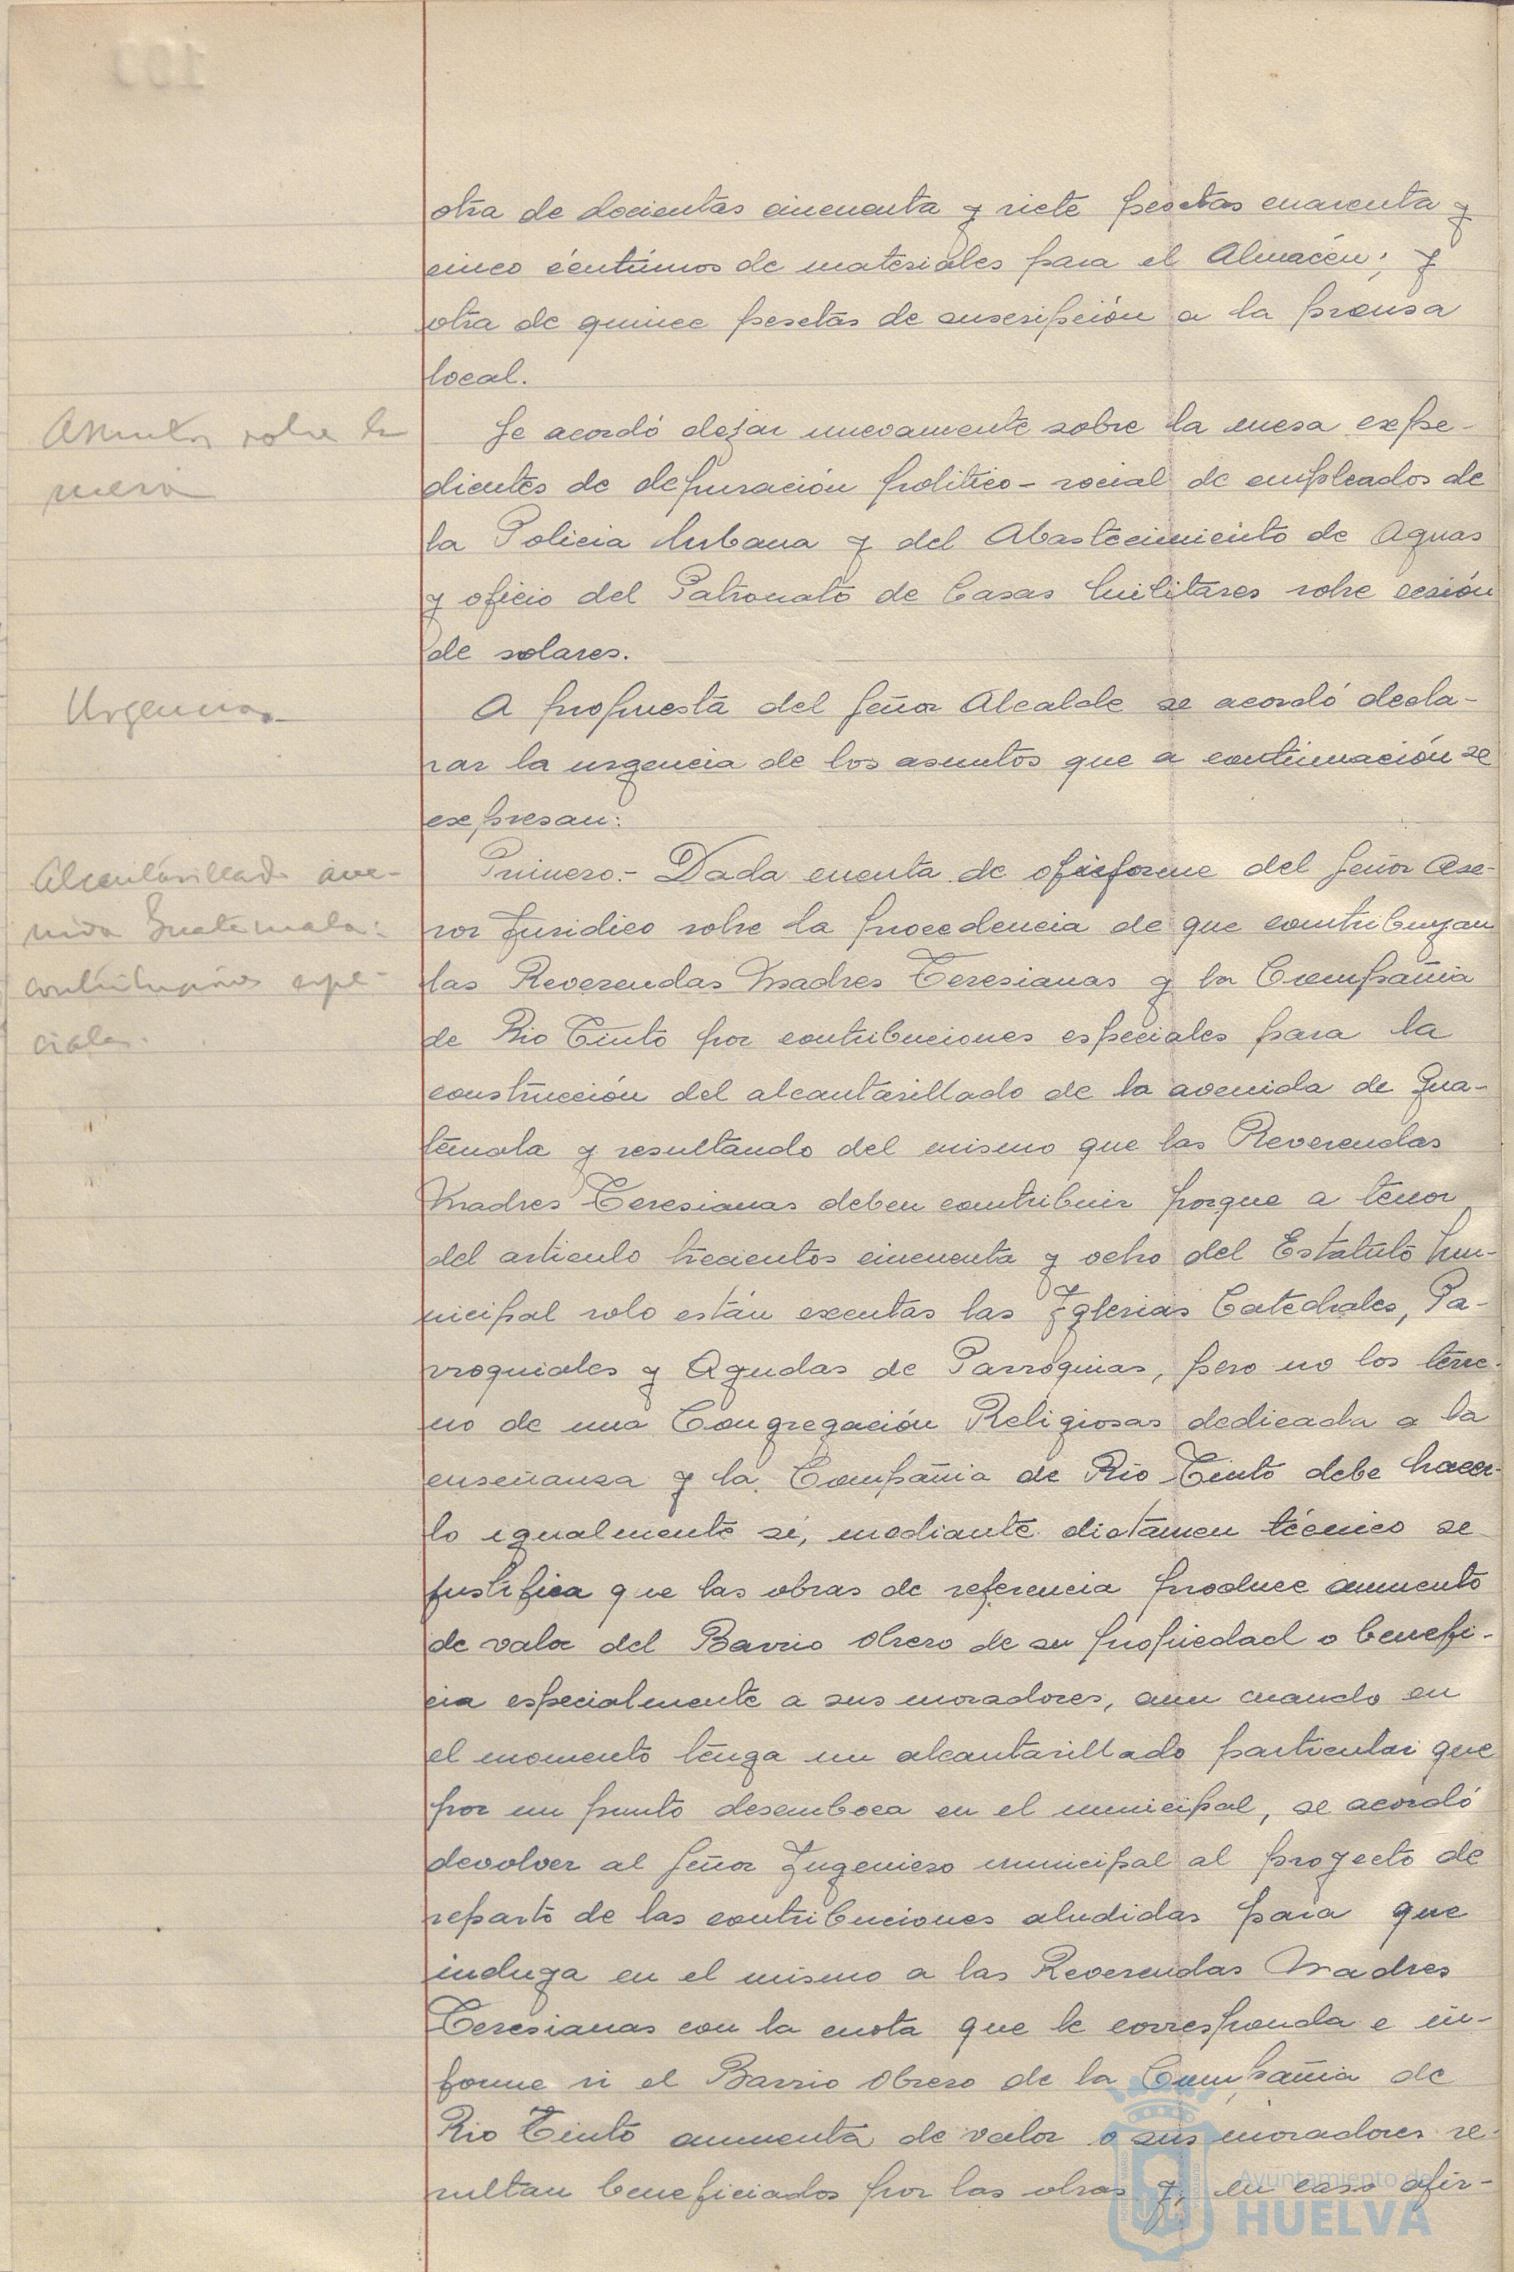 otra de docientas cincuenta y siete pesetas cuarenta y
cinco céntimos de materiales para el Almacén; y
otra de quince pesetas de suscripción a la prensa
local.
Asuntos sobre la
mesa
Se acordó dejar nuevamente sobre la mesa expe-
dientes de depuración político-social de empleados de
la Policia Urbana y del Abastecimiento de Aguas
y oficio del Patronato de Casas Militares sobre cesión
de solares.
Urgencias
A propuesta del Señor Alcalde se acordó decla-
rar la urgencia de los asuntos que a continuación se
expresan:
Alcantarillado ave-
nida Guatemala:
contribuciones espe-
ciales.
Primero.- Dada cuenta de del Señor Ase-
sor Juridico sobre la procedencia de que contribuyan
las Reverendas Madres Teresianas y la Compañia
de Rio Tinto por contribuciones especiales para la
construcción del alcantarillado de la avenida de Gua-
temala y resultando del mismo que las Reverendas
Madres Teresianas deben contribuir porque a tenor
del articulo trecientos cincuenta y ocho del Estatuto Mu-
nicipal solo están exentas las Iglesias Catedrales, Pa-
rroquiales y Ayudas de Parroquias, pero no los terre-
no de una Congregación Religiosas dedicada a la
enseñanza y la Compañia de Rio Tinto debe hacer-
lo igualmente si, mediante dictamen técnico se
justifica que las obras de referencia produce aumento
de valor del Barrio Obrero de su propiedad o benefi-
cia especialmente a sus moradores, aun cuando en
el momento tenga un alcantarillado particular que
por un punto desemboca en el municipal, se acordó
devolver al Señor Ingeniero municipal al proyecto de
reparto de las contribuciones aludidas para que
incluya en el mismo a las Reverendas Madres
Teresianas con la cuota que le corresponda e in-
forme si el Barrio Obrero de la Compañia de
Rio Tinto aumenta de valor o sus moradores re-
sultan beneficiados por las obras y, en caso afir-
Ayuntamiento de
HUELVA